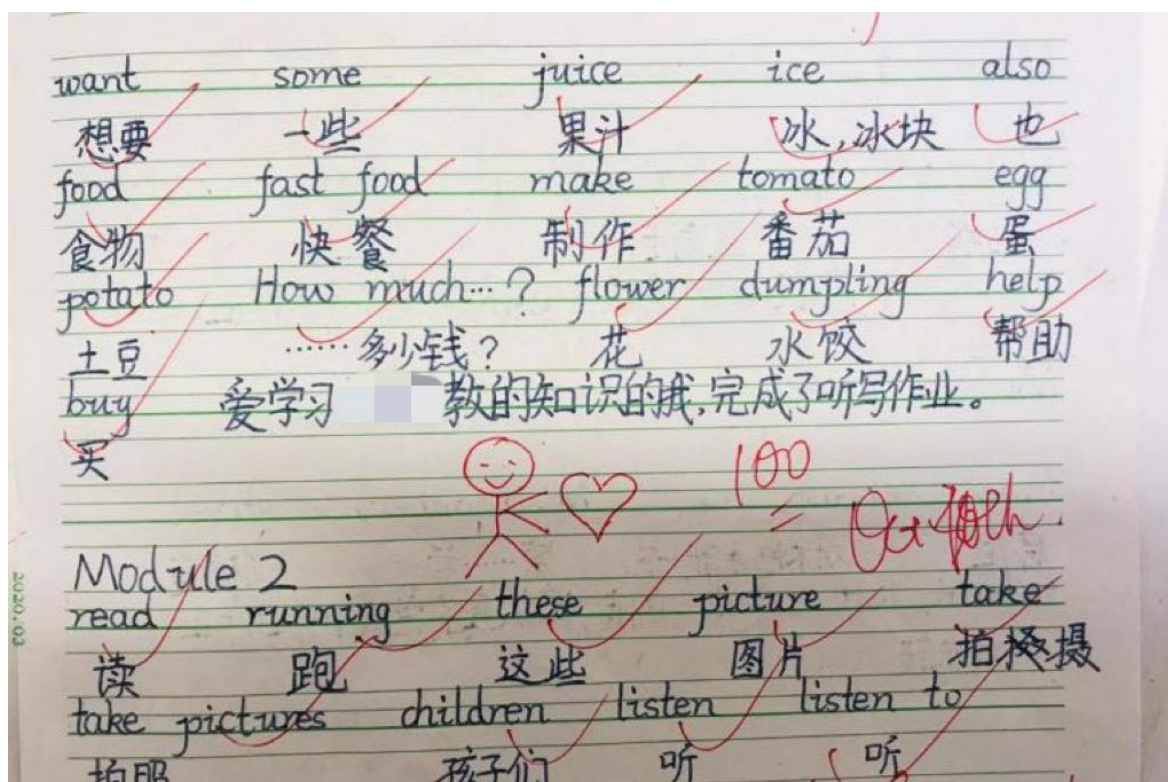 want some juice ice also
想要 一些 果汁 冰,冰块 也
food fast food make tomato egg
食物 快餐 制作 番茄 蛋
potato How much…? flower dumpling help
土豆 ……多少钱? 花 水饺 帮助
buy 爱学习 教的知识的我,完成了听写作业。
买
100
Module 2
read running these picture take
读 跑 这些 图片 拍摄
take pictures children listen listen to
拍照 孩子们 听 听
2020.03